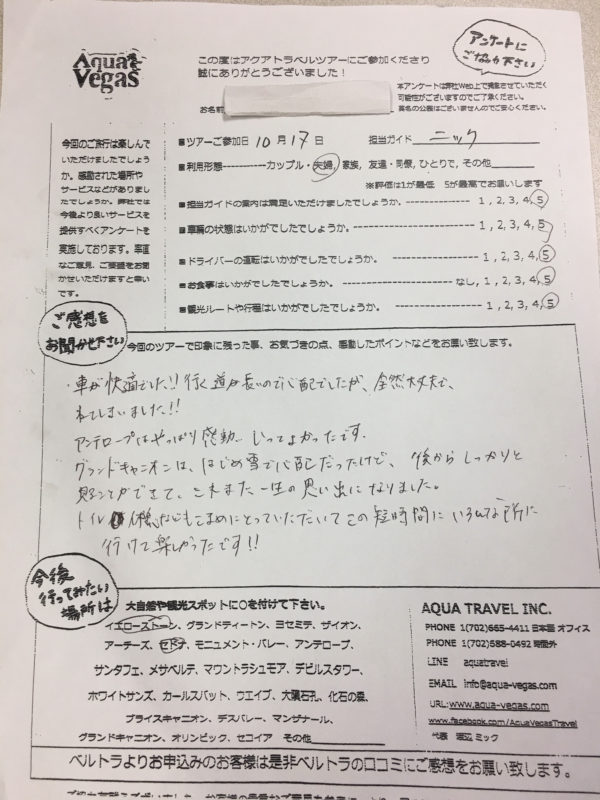 Aqua Vegas
この度はアクアトラベルツアーにご参加くださり
誠にありがとうございました！
アンケートに
ご協力下さい
本アンケートは弊社Web上で掲載させていただく
可能性がございますのでご了承ください。
実名の公表はございませんのでご安心ください。
お名前
今回のご旅行は楽しんで
いただけましたでしょう
か。感動された場所や
サービスなどがありまし
たでしょうか。弊社では
今後より良いサービスを
提供すべくアンケートを
実施しております。率直
なご意見、ご要望をお聞
かせいただけますと幸い
です。
■ツアーご参加日 10月17日 担当ガイド ニック
■利用形態-----------カップル・夫婦, 家族, 友達・同僚, ひとりで, その他
※評価は1が最低 5が最高でお願いします
■担当ガイドの案内は満足いただけましたでしょうか。---------------- 1, 2, 3, 4, 5
■車輛の状態はいかがでしたでしょうか。------------------------- 1, 2, 3, 4, 5
■ドライバーの運転はいかがでしたでしょうか。------------------- 1, 2, 3, 4, 5
■お食事はいかがでしたでしょうか。------------------------- なし, 1, 2, 3, 4, 5
■観光ルートや行程はいかがでしたでしょうか。------------------- 1, 2, 3, 4, 5
ご感想を
お聞かせ下さい
今回のツアーで印象に残った事、お気づきの点、感動したポイントなどをお願い致します。
・車が快適でした!! 行く道が長いので心配でしたが、全然大丈夫で、
ねてしまいました!!
アンテロープはやっぱり感動… いってよかったです.
グランドキャニオンは、はじめ雪で心配だったけど、後からしっかりと
見ることができて、これまた一生の思い出になりました。
トイレ休憩などもこまめにとっていただいてこの短時間にいろんな所に
行けて楽しかったです!!
今後
行ってみたい
場所は
大自然や観光スポットに○を付けて下さい。
イエローストーン、グランドティートン、ヨセミテ、ザイオン、
アーチーズ、セドナ、モニュメント・バレー、アンテロープ、
サンタフェ、メサベルテ、マウントラシュモア、デビルスタワー、
ホワイトサンズ、カールスバット、ウエイブ、大隕石孔、化石の森、
ブライスキャニオン、デスバレー、マンザナール、
グランドキャニオン、オリンピック、セコイア その他
AQUA TRAVEL INC.
PHONE 1(702)665-4411 日本語 オフィス
PHONE 1(702)588-0492 時間外
LINE aquatravel
EMAIL info@aqua-vegas.com
URL: www.aqua-vegas.com
www.facebook.com/AquaVegasTravel
代表 渡辺 ミック
ベルトラよりお申込みのお客様は是非ベルトラの口コミにご感想をお願い致します。